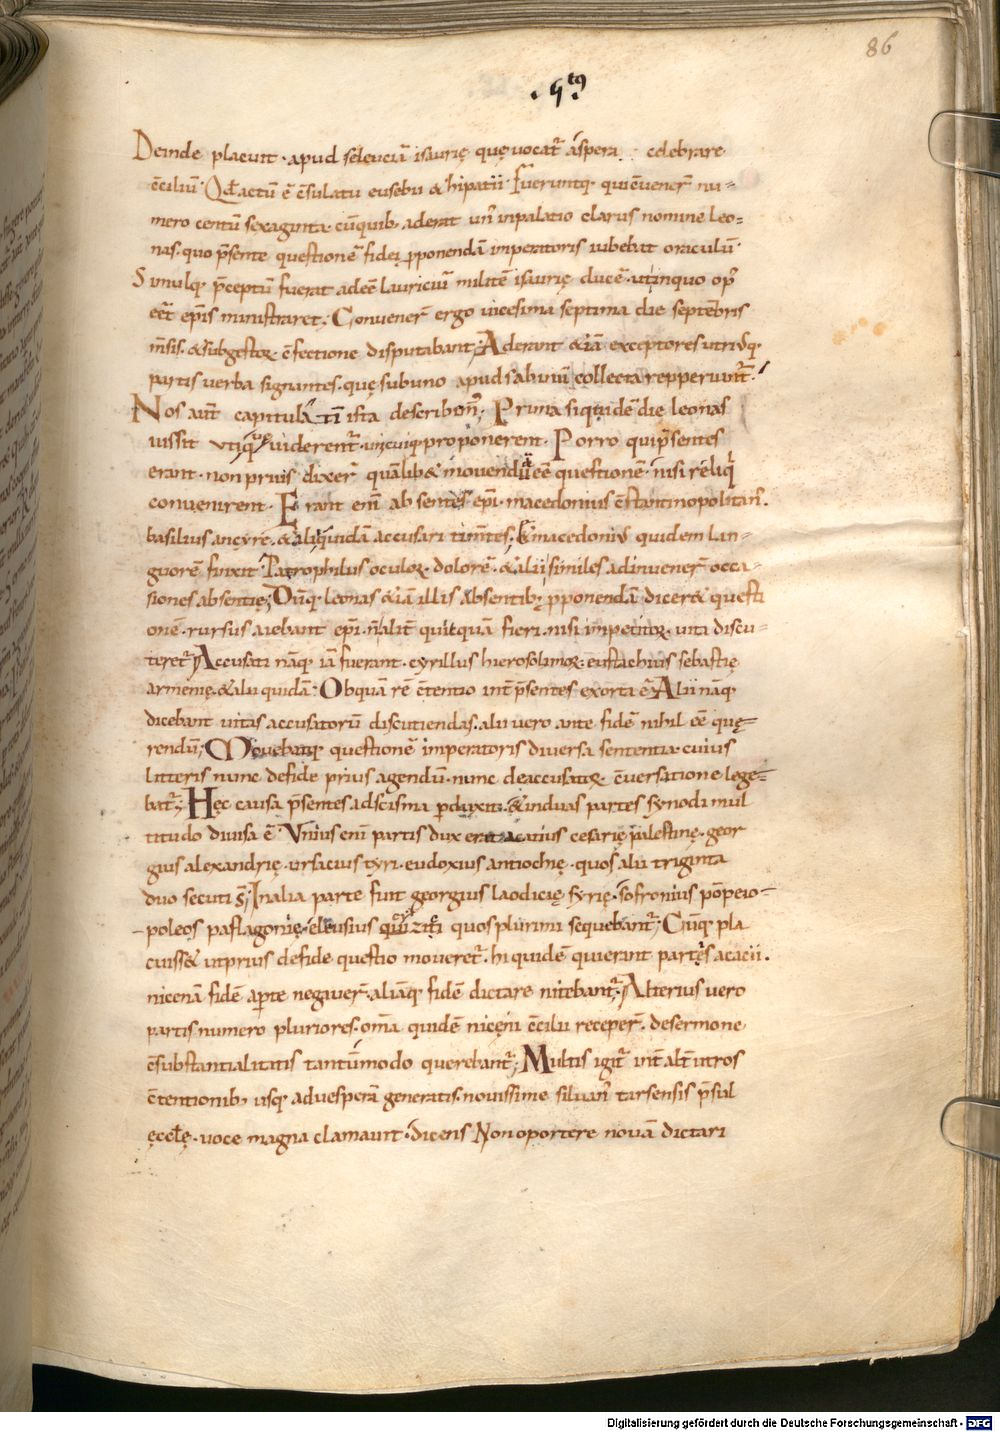 86
.5tꝰ.
Deinde placuit · apud seleuciā isaurię quę vocat̄ aspera : celebrare
c̄ciliū · Qd̄ actū ē c̄sulatu eusebii & hipatii · Fueruntq; qui c̄uener̄ nu-
mero centū sexaginta · cū quib; aderat un̄ in palatio clarus nomine leo-
nas · quo p̄sente questionē fidei p̱ponendā imperatoris iubebat oraculū ·
Simulq; p̄ceptū fuerat ad eē lauriciū militē isaurię ducē · ut in quo op̄
eēt ep̄is ministraret · Convener̄ ergo uicesima septima die septēbris
m̄sis · & sub gestoꝝ c̄fectione disputabant · Aderant & iā exceptores utriusq;
partis uerba signantes · quę sub uno apud sabinū collecta repperiunt̄ ·
Nos aūt capitulā tm̄ ista describem̄ ; Prima siquidē die leonas
iussit vt quę uiderent̄ unicuiq; proponerent · Porro qui p̄sentes
erant · non prius dixer̄ quālib& mouendā eē questionē · nisi reliq̄
convenirent · Erant enī absentes ep̄i · macedonius c̄stantinopolitan̄ ·
basilius ancyrę · & alii quidā accusari tim̄tes · & macedoniꝰ quidem lan-
guorē finxit · Patrophilus oculoꝝ dolorē · & alii similes adinuener̄ occa-
siones absentię ; Cūq; leonas & iā illis absentib; p̱ponendā dicer& questi
onē · rursus aiebant ep̄i · n̄ alit̄ quicquā fieri · nisi impetitoꝝ uita discu-
teret̄ · Accusati nāq; iā fuerant · cyrillus hierosolimoꝝ : eustachius sebastię
armenię · & alii quidā : Ob quā rē c̄tentio int̄ p̄sentes exorta ē · Alii nāq;
dicebant uitas accusatorū discutiendas · alii uero ante fidē nihil eē quę-
rendū ; Mouebatq; questionē imperatoris diuersa sententia · cuius
litteris nunc de fide prius agendū · nunc de accusatoꝝ c̄uersatione lege-
bat̄ ; Hęc causa p̄sentes ad scisma p̱duxit · & in duas partes synodi mul
titudo diuisa ē · Vnius enī partis dux erat acatius cesarię palestinę · geor
gius alexandrię · ursacius tyri · eudoxius antiochię · quos alii triginta
duo secuti s̄ ; In alia parte fuit georgius laodicię syrię · sofronius pōpeio-
poleos paflagonię · eleusius quiziti quos plurimi sequebant̄ ; Cūq; pla
cuiss& ut prius de fide questio moueret̄ · hi quidē qui erant partes acacii ·
nicenā fidē ap̱te negauer̄ · aliāq; fidē dictare nitebant̄ · Alterius uero
partis numero pluriores · om̄a quidē niceni c̄cilii receper̄ · de sermone
c̄substantialitatis tantūmodo querebant̄ ; Multis igit̄ int̄ alt̄ utros
c̄tentionib; usq; ad uesperā generatis · nouissime siluan̄ tarsensis p̄sul
ęcclę · uoce magna clamauit · dicens Non oportere nouā dictari
Digitalisierung gefördert durch die Deutsche Forschungsgemeinschaft - DFG